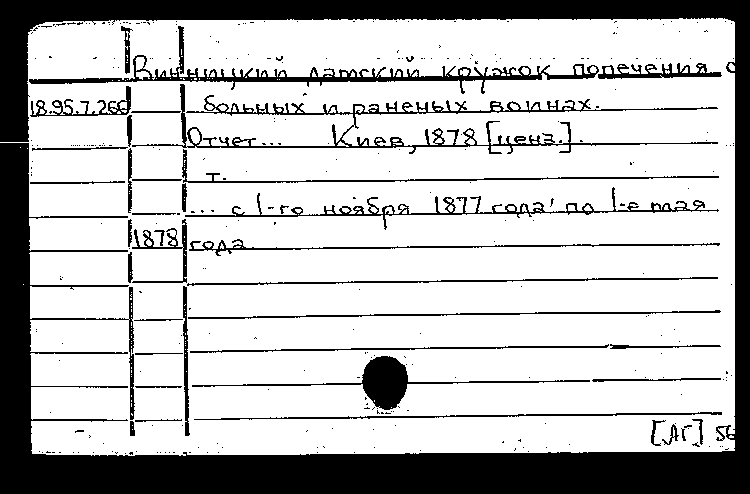 Винницкий дамский кружок попечения о
18.95.7.266 больных и раненых воинах.
Отчет... Киев, 1878 [ценз.].
т.
... с 1-го ноября 1877 года по 1-е мая
1878 года.
[ДГ] 56